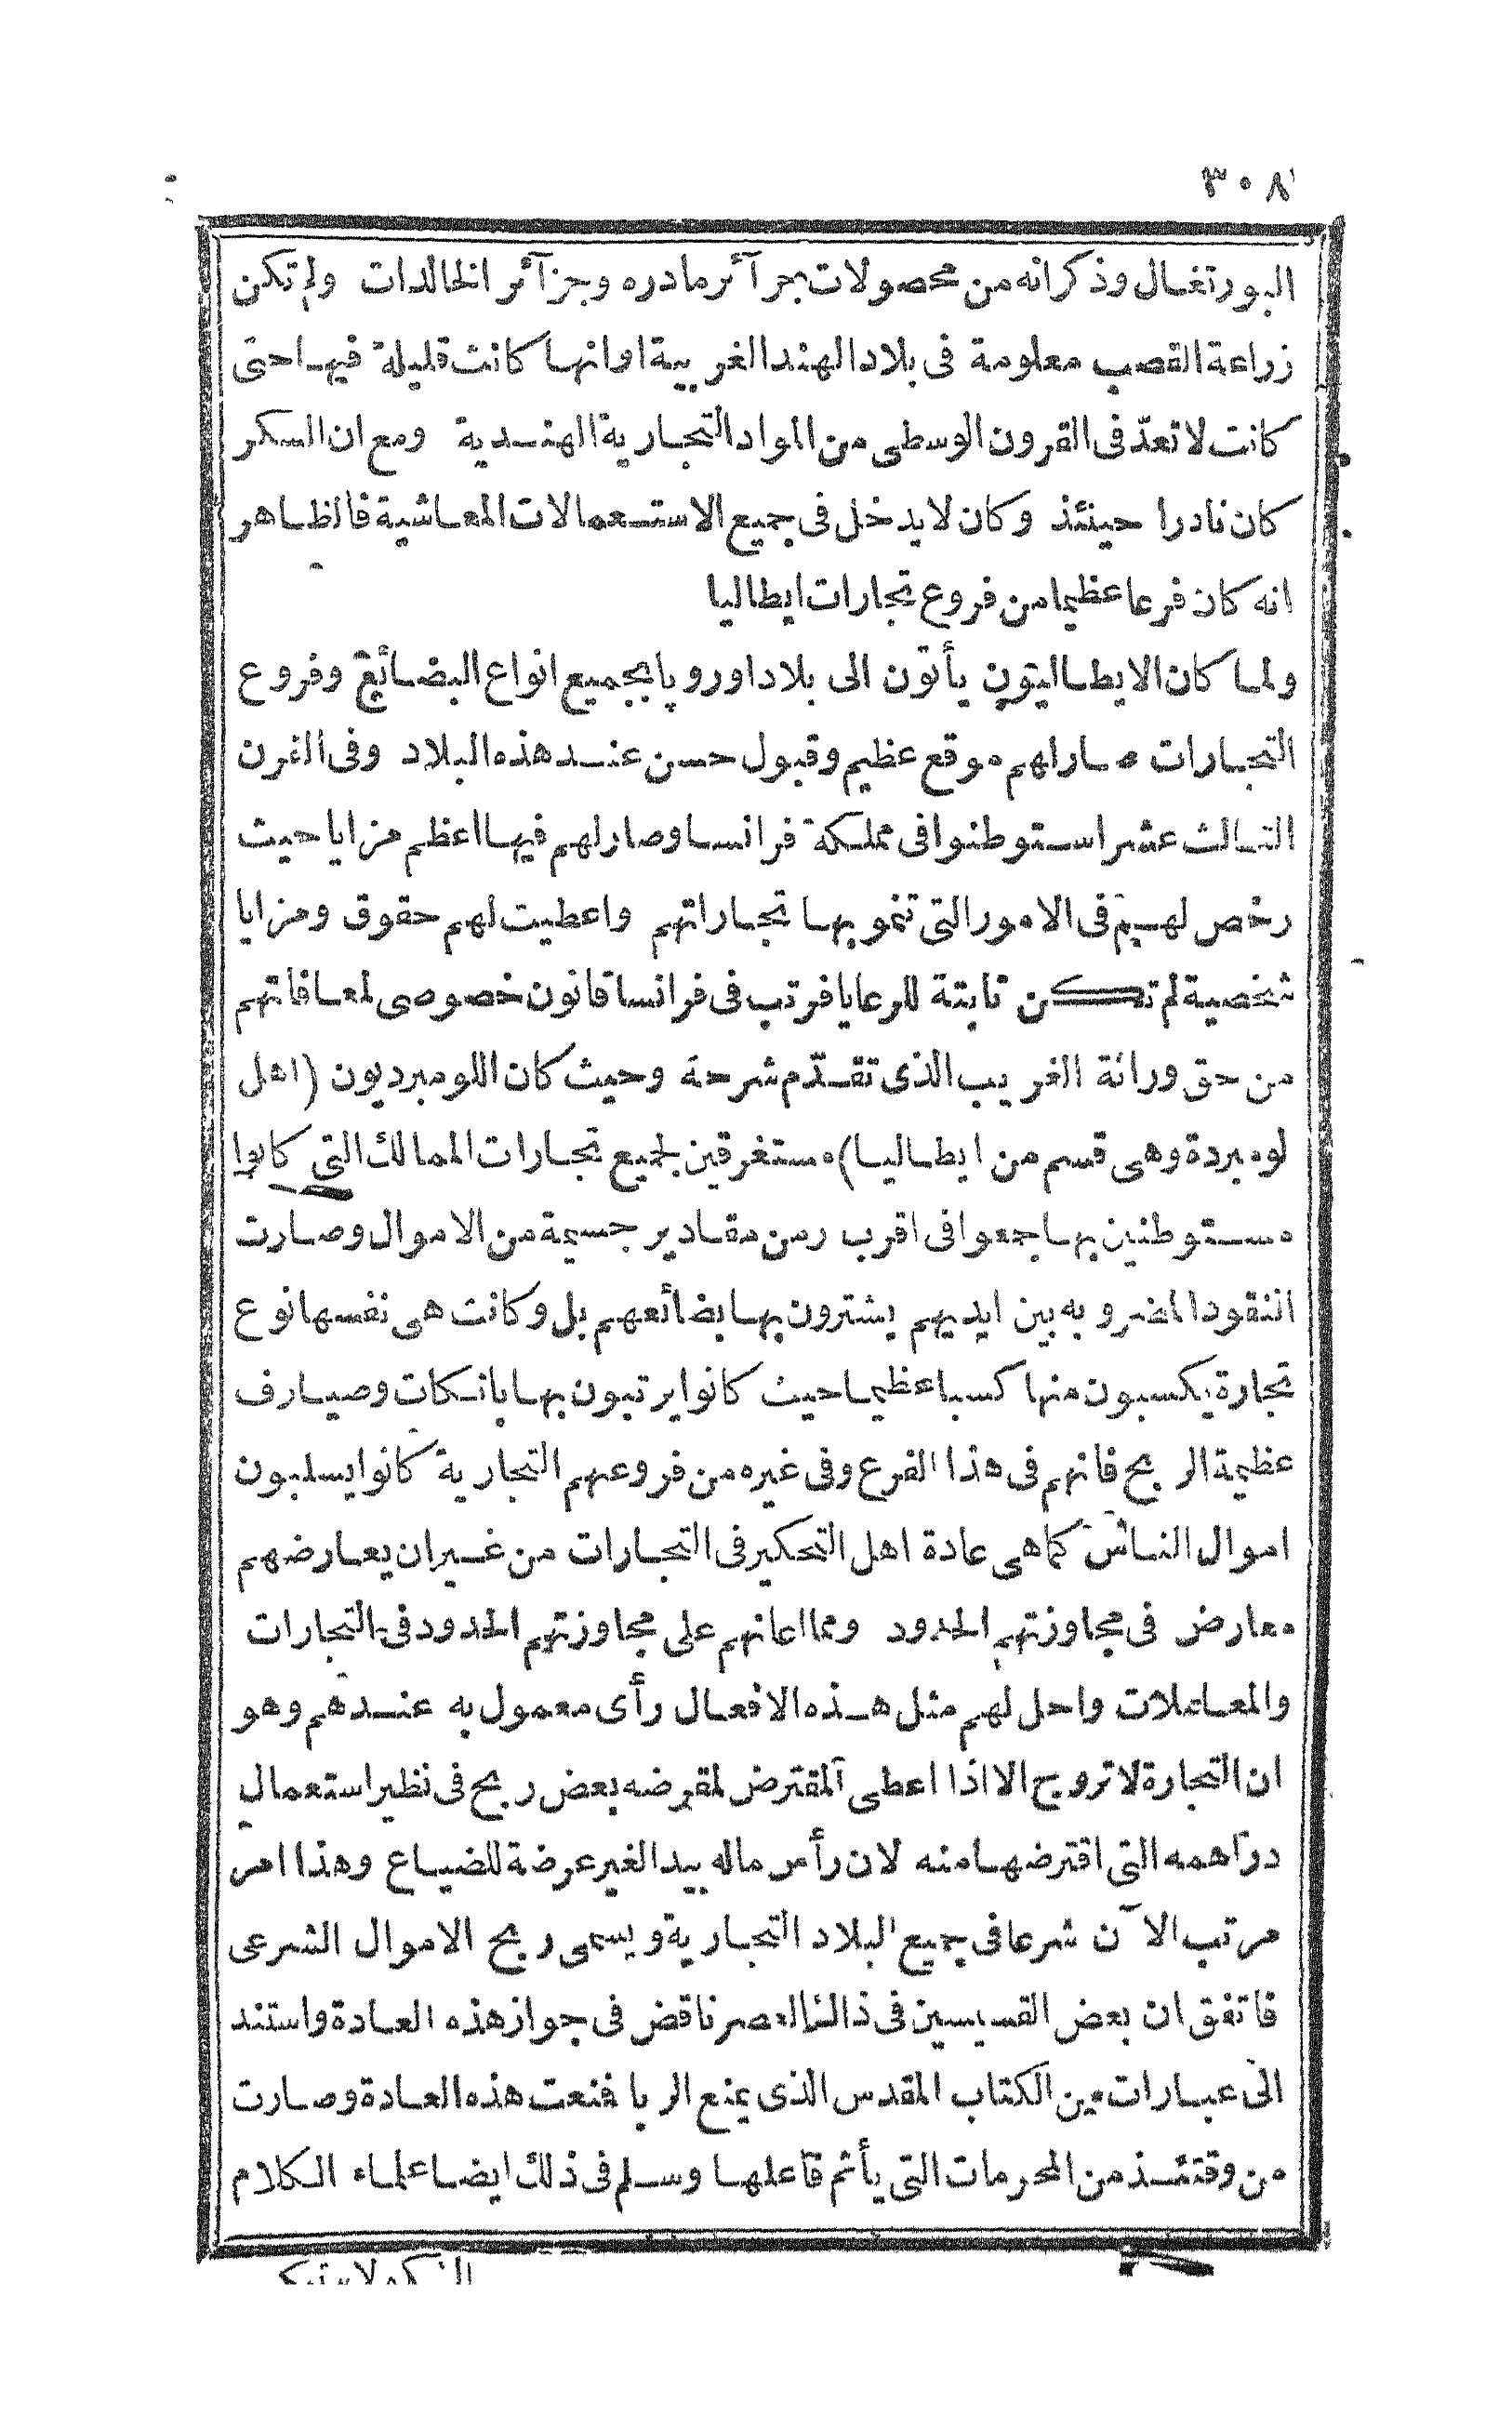 ٣٠٨
البورتغال وذكر انه من محصولات جزآئر مادره وجزآئر الخالدات ولم تكن
زراعة القصب معلومة فى بلاد الهند الغربية او انها كانت قليلة فيها حتى
كانت لا تعدّ فى القرون الوسطى من المواد التجارية الهندية ومع ان السكر
كان نادرا حينئذ وكان لا يدخل فى جميع الاستعمالات المعاشية فالظاهر
انه كان فرعا عظيما من فروع تجارات ايطاليا
ولما كان الايطاليون يأتون الى بلاد اوروپا بجميع انواع البضائع وفروع
التجارات صار لهم موقع عظيم وقبول حسن عند هذه البلاد وفى القرن
الثالث عشر استوطنوا فى مملكة فرانسا وصار لهم فيها اعظم مزايا حيث
رخص لهم فى الامور التى تنمو بها تجاراتهم واعطيت لهم حقوق ومزايا
شخصية لم تكن ثابتة للرعايا فرتب فى فرانسا قانون خصوصى لمعافاتهم
من حق وراثة الغريب الذى تقدّم شرحه وحيث كان اللومبرديون (اهل
لومبردة وهى قسم من ايطاليا) مستغرقين لجميع تجارات الممالك التى كانوا
مستوطنين بها جمعوا فى اقرب زمن مقادير جسيمة من الاموال وصارت
النقود المضروبه بين ايديهم يشترون بها بضائعهم بل وكانت هى نفسها نوع
تجارة يكسبون منها كسبا عظيما حيث كانوا يرتبون بها بانكات وصيارف
عظيمة الربح فانهم فى هذا الفرع وفى غيره من فروعهم التجارية كانوا يسلبون
اموال الناس كما هى عادة اهل التحكير فى التجارات من غير ان يعارضهم
معارض فى مجاوزتهم الحدود ومما اعانهم على مجاوزتهم الحدود فى التجارات
والمعاملات واحل لهم مثل هذه الافعال رأى معمول به عندهم وهو
ان التجارة لا تروج الا اذا اعطى المقترض لمقرضه بعض ربح فى نظير استعمال
دراهمه التى اقترضها منه لان رأس ماله بيد الغير عرضة للضياع وهذا امر
مرتب الآن شرعا فى جميع البلاد التجارية ويسمى ربح الاموال الشرعى
فاتفق ان بعض القسيسين فى ذالك العصر ناقض فى جواز هذه العادة واستند
الى عبارات من الكتاب المقدس الذى يمنع الربا فمنعت هذه العادة وصارت
من وقتئذ من المحرمات التى يأثم فاعلها وسلم فى ذلك ايضا علماء الكلام